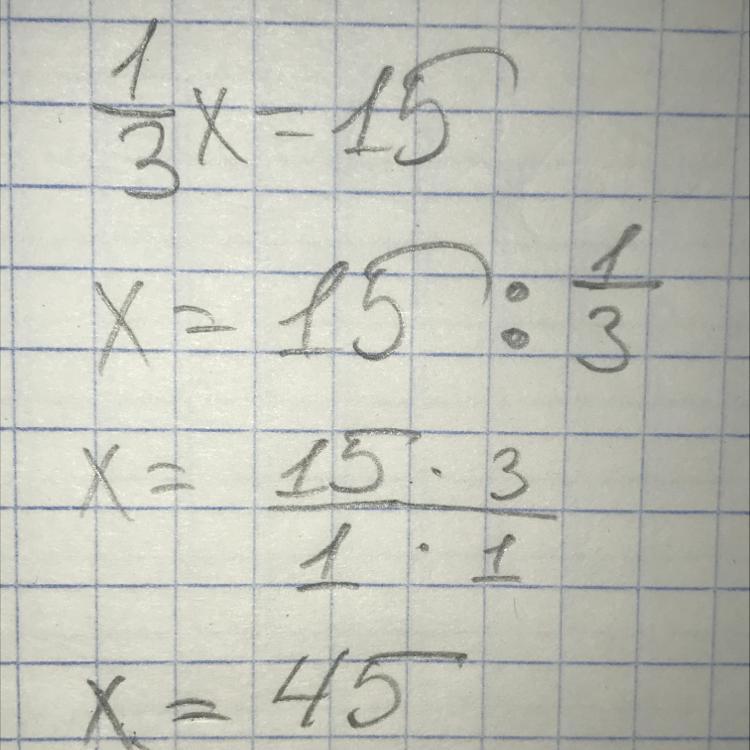 1/3 x = 15
x = 15 : 1/3
x = (15 · 3)/(1 · 1)
x = 45